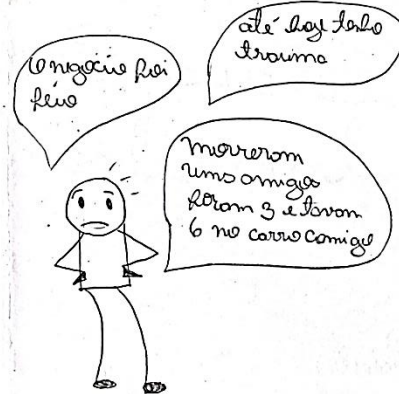 O negócio foi
feio
até hoje tenho
trauma
morreram
uns amigo
foram 3 e tavam
6 no carro comigo